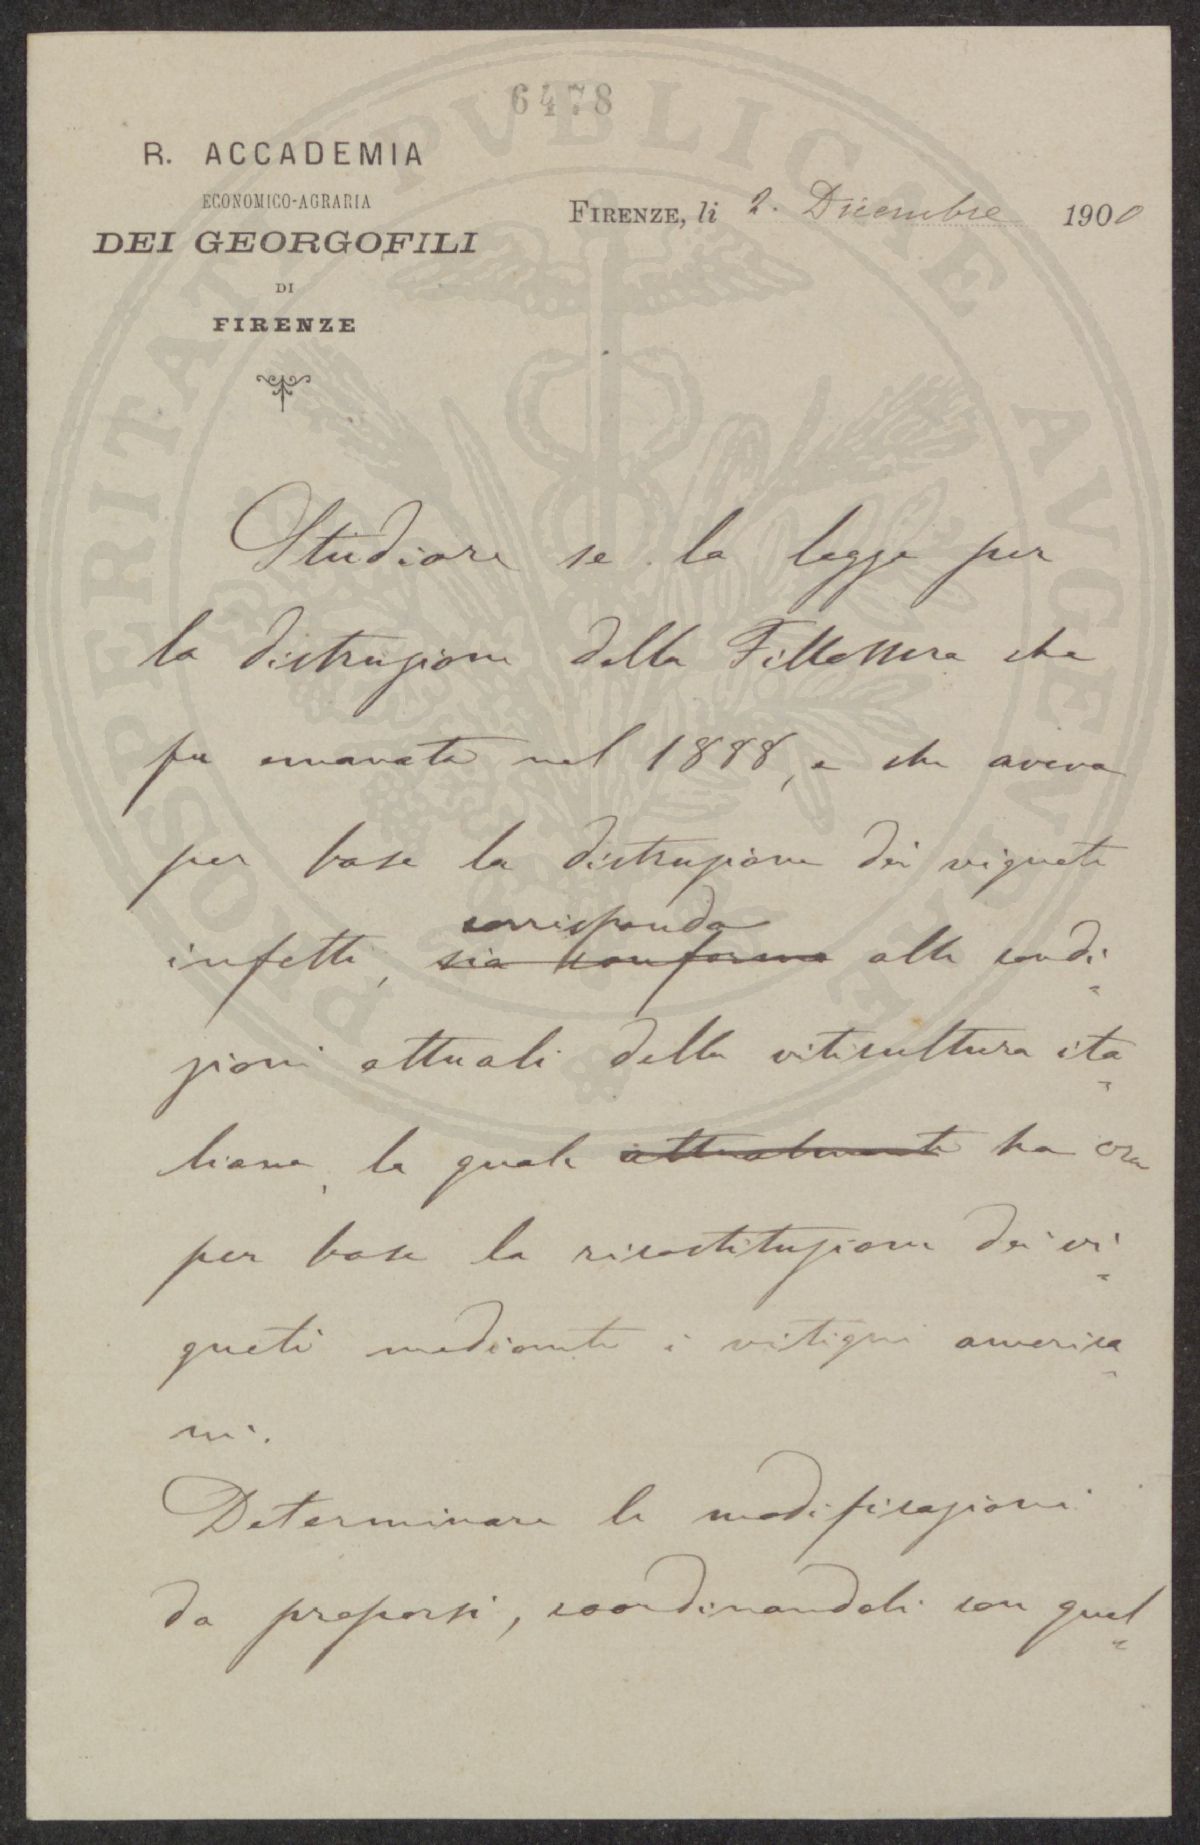 6478
R. ACCADEMIA
ECONOMICO-AGRARIA
DEI GEORGOFILI
DI
FIRENZE
FIRENZE, li 2. Dicembre 1900
PROSPERITATI PVBLICAE AVGENDAE
Studiare se la legge per
la distruzione della Fillossera che
fu emanata nel 1888, e che aveva
per base la distruzione dei vigneti
corrisponda
infetti, sia conforme alle condi=
zioni attuali della viticultura ita=
liana, la quale attualmente ha ora
per base la ricostituzione dei vi=
gneti mediante i vitigni america=
ni.
Determinare le modificazioni
da proporsi, coordinandole con quel=